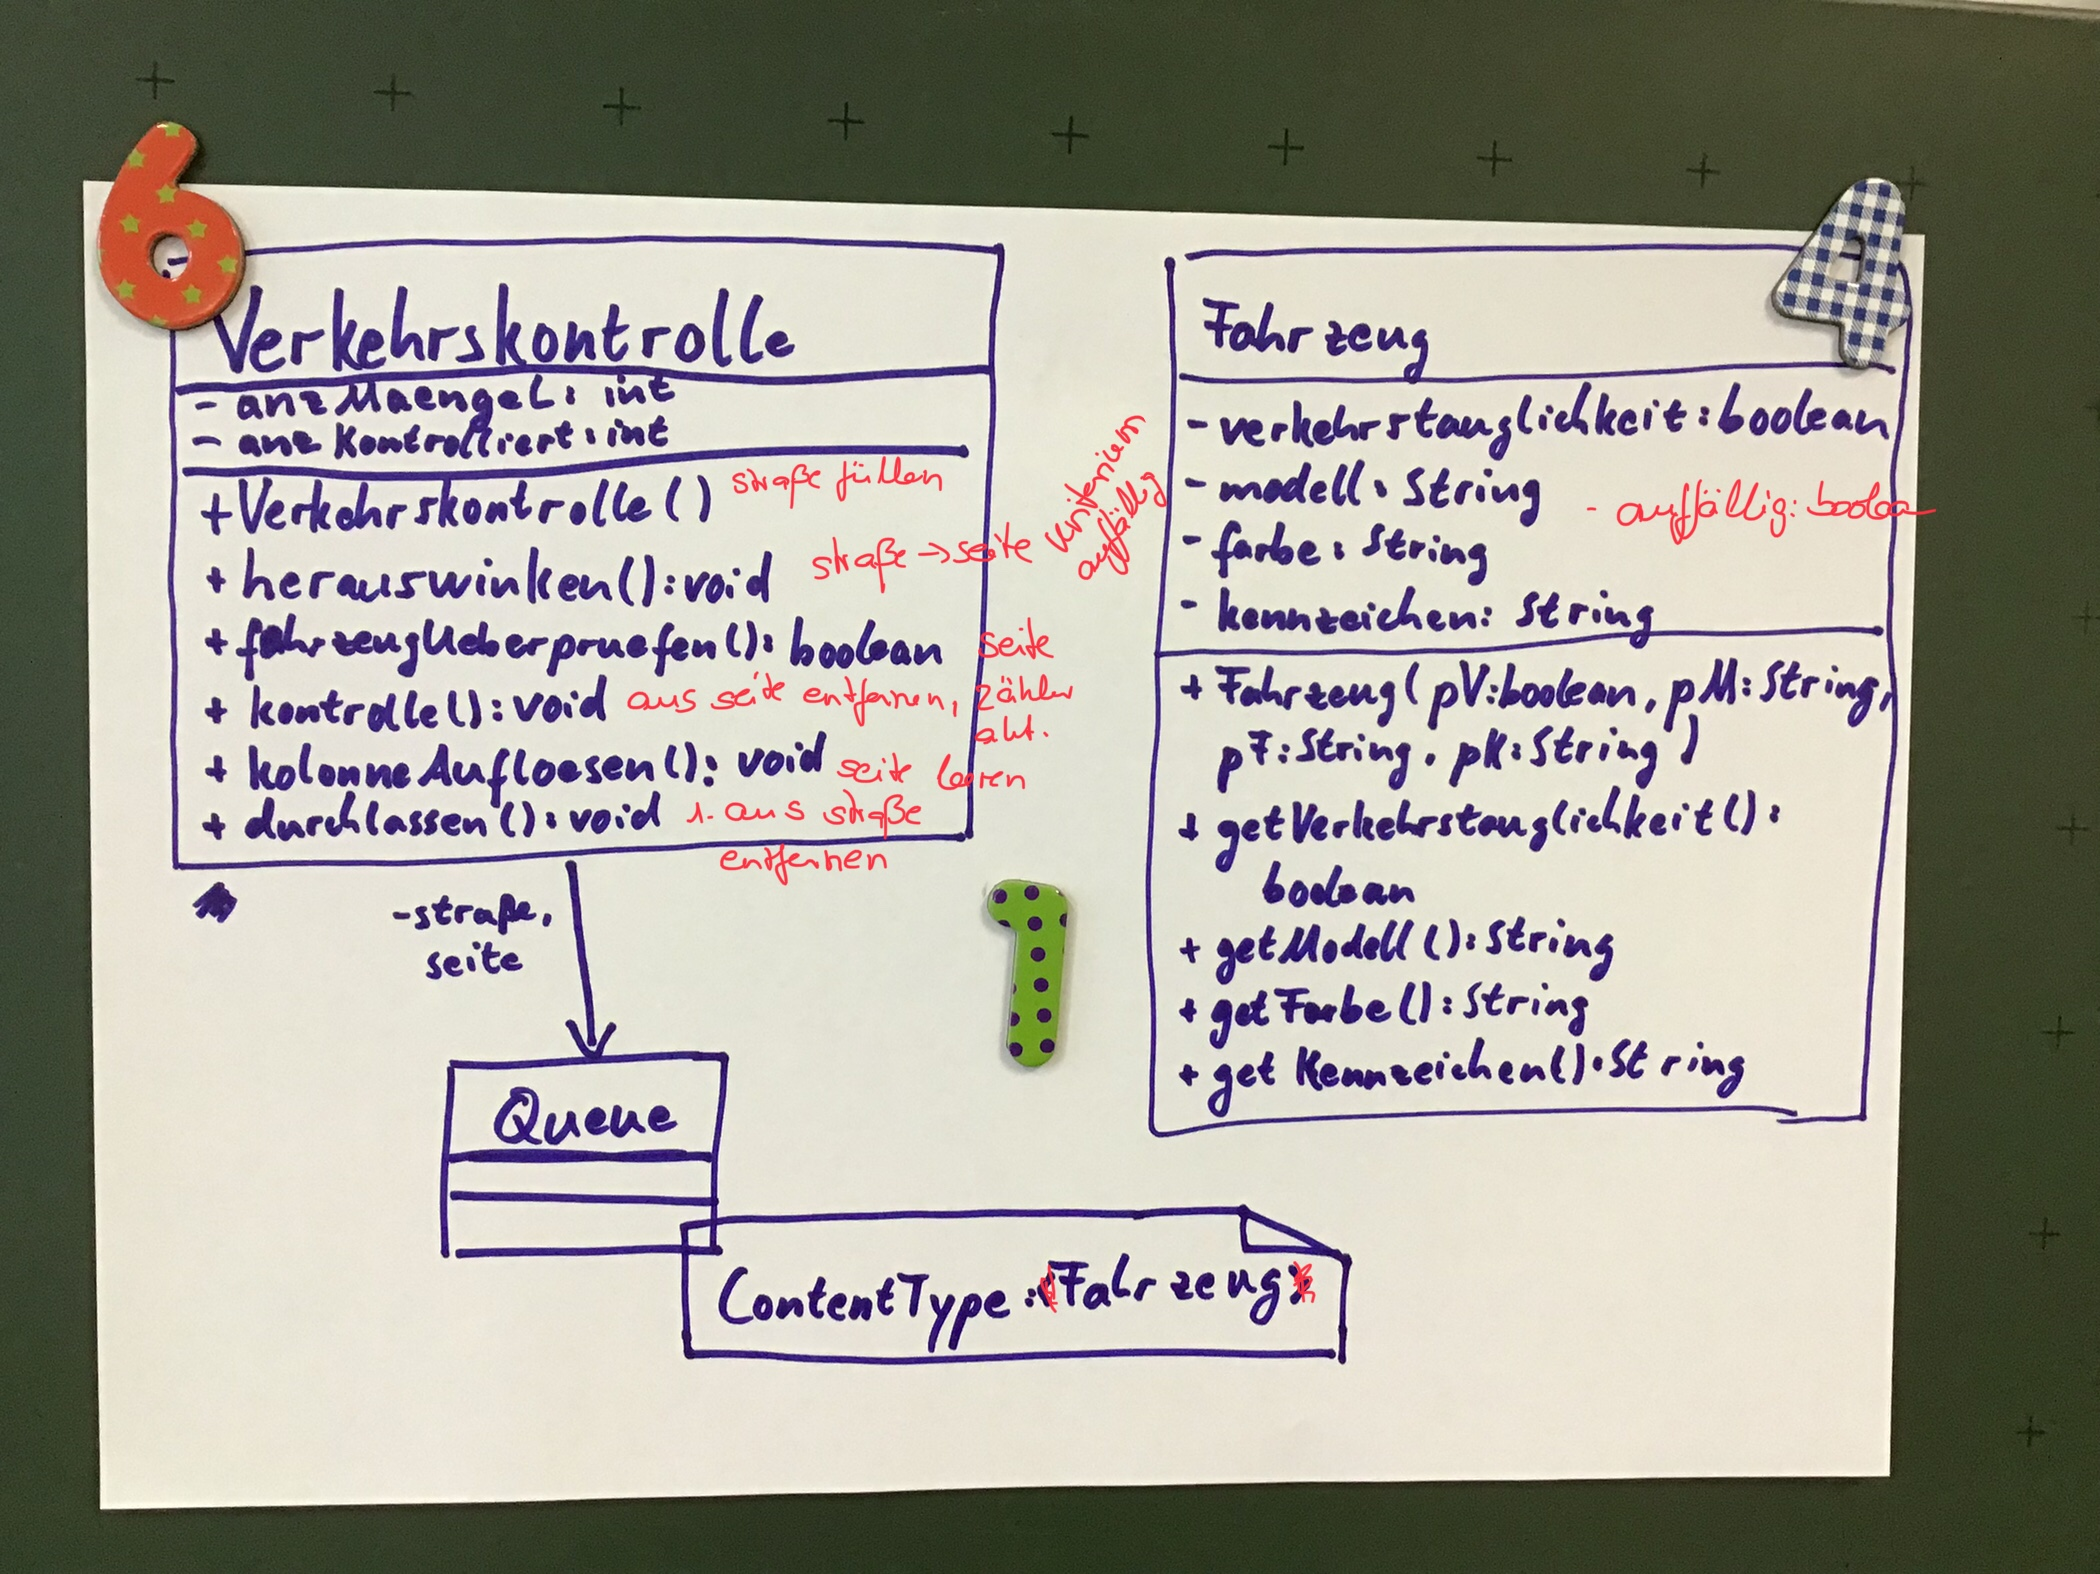 6
4
Verkehrskontrolle
- anzMaengel: int
- anzKontrolliert: int
+ Verkehrskontrolle() straße füllen
+ herauswinken(): void straße → seite Kriterium
auffällig
+ fahrzeugUeberpruefen(): boolean seite
+ kontrolle(): void aus seite entfernen, Zähler
akt.
+ kolonneAufloesen(): void seite leeren
+ durchlassen(): void 1. aus straße
entfernen
- straße,
seite
Queue
ContentType: Fahrzeug
1
Fahrzeug
- verkehrstauglichkeit: boolean
- modell: String
- auffällig: boolean
- farbe: String
- kennzeichen: String
+ Fahrzeug(pV: boolean, pM: String,
pF: String, pK: String)
+ getVerkehrstauglichkeit():
boolean
+ getModell(): String
+ getFarbe(): String
+ getKennzeichen(): String